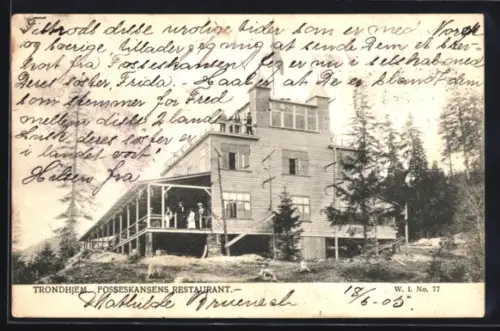 Tiltrods disse urolige tider som er med Norge
og Sverige, tillader jeg mig at sende Dem et brev-
kort fra Fosseskansen. Jeg er nu i selskab med
Deres søster, Frida. – Haaber at De er blandt dem
som stemmer for Fred
mellem disse 2 lande
deres søster er
i landet vort
Hilsen fra
TRONDHJEM. FOSSESKANSENS RESTAURANT.—
W. I. No. 77
Mathilde 18/6-05